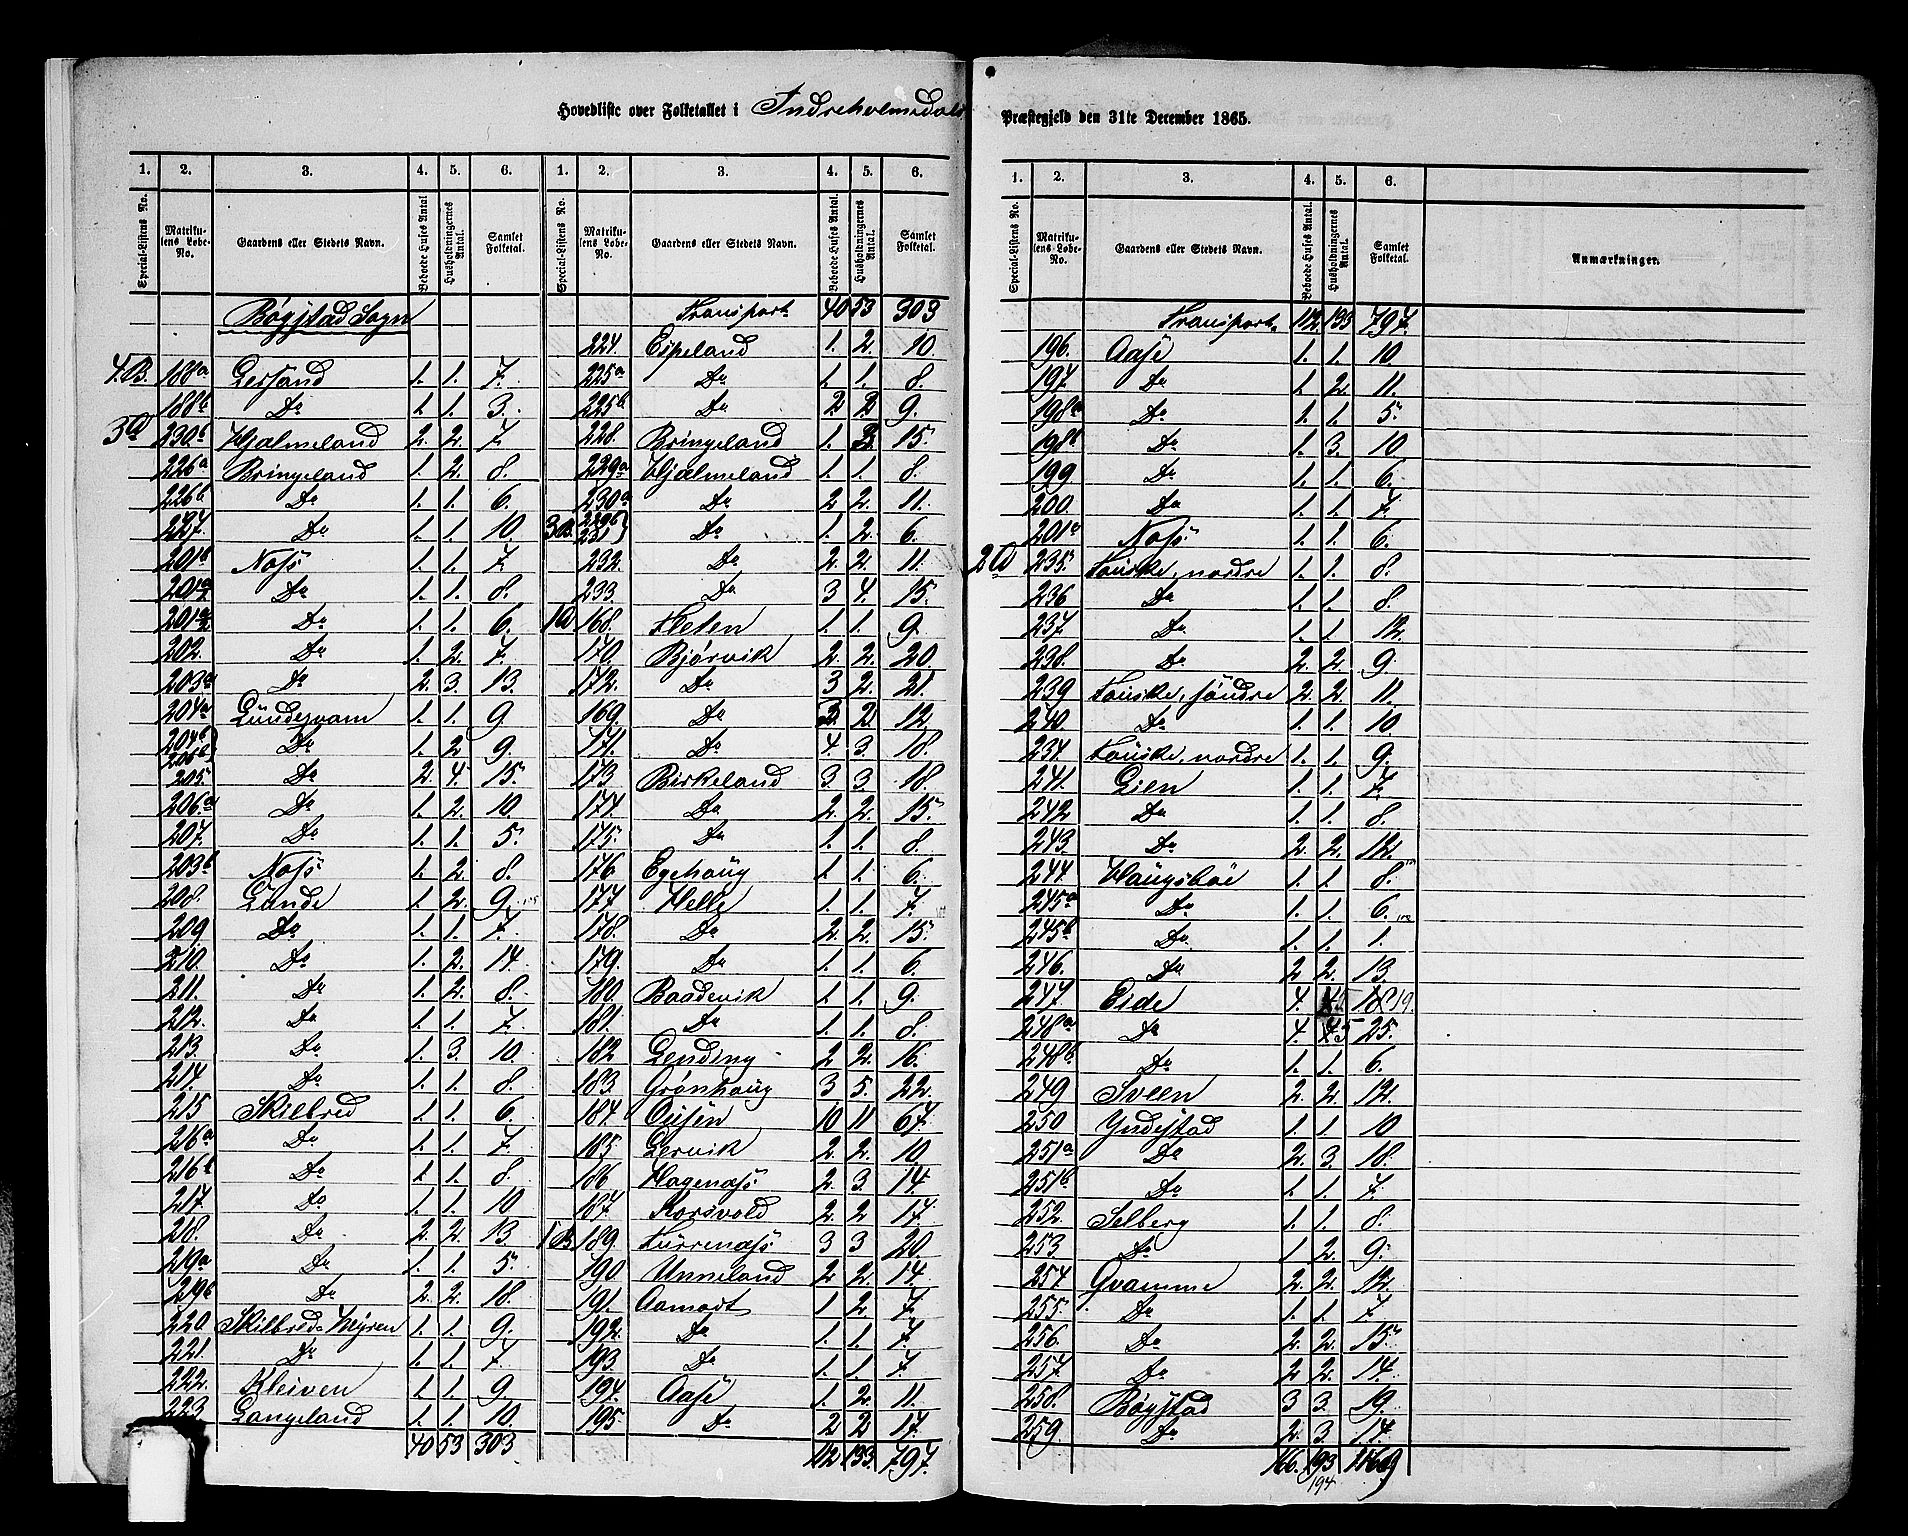 Hovedliste over Folketallet i Indreholmedals Præstegjeld den 31te December 1865.
1. 2. 3. 4. 5. 6. 1. 2. 3. 4. 5. 6.
Special-Listens No. Matrikulens Løbe-No. Gaardens eller Stedets Navn. Beboede Huses Antal Husholdningernes Antal. Samlet Folketal. Special-Listens No. Matrikulens Løbe-No. Gaardens eller Stedets Navn. Beboede Huses Antal. Husholdningernes Antal. Samlet Folketal.
Bøgstad Sogn
4.B. 188a Gersand 1. 1. 7.
188b Do 1. 1. 3.
3a 230b Hjælmeland 2. 2. 7.
226a Bringeland 1. 2. 8.
226b Do 1. 1. 6.
227. Do 1. 1. 10.
201b Nass 1. 1. 7.
201a Do 1. 1. 8.
201a Do 1. 1. 6.
202. Do 1. 2. 7.
203a Do 2. 3. 13.
204a Gündersvam 1. 1. 9.
204b 206b Do 1. 2. 9.
205 Do 2. 4. 15.
206a Do 1. 2. 10.
207. Do 1. 1. 5.
203b Nass 1. 2. 8.
208. Lunde 1. 2. 9.
209 Do 1. 1. 7.
210. Do 1. 2. 14.
211. Do 1. 2. 8.
212. Do 1. 1. 7.
213. Do 1. 3. 10.
214. Do 1. 1. 8.
215 Skilbred 1. 1. 6.
216a Do 1. 1. 7.
216b Do 1. 1. 8.
217. Do 1. 1. 10
218. Do 2. 2. 13.
219a Do 1. 1. 5.
219b Do 2. 2. 18.
220 Skilbreds Myren 1. 1. 9.
221. Do 1. 1. 7.
222. Kleiven 1. 1. 9.
223 Langeland 1. 1. 10.
40 53 303
Transport 40 53 303
224. Espeland 1. 2. 10.
225a Do 1. 1. 8.
225b Do 2 2 9.
228. Bringeland 1. 3. 15.
229a Hjælmeland 1. 1. 8.
230a Do 2 2. 11.
3B. 229b 231 Do 1. 2. 6.
232. Do 2. 2. 11.
233. Do 3 4. 15.
1a 168. Fleten 1. 1. 9.
170. Bjørvik 2. 2. 20.
172. Do 3 2. 21.
169. Do 2. 2. 12.
171. Do 4. 3. 18.
173 Birkeland 3 3. 18.
174. Do 2. 2. 15.
175. Do 1. 1. 8.
176 Egehaug 1. 1. 6.
177 Helle 1. 1. 7.
178. Do 2. 2. 15.
179. Do 1. 1. 6.
180. Baadevik 1. 1. 9.
181. Do 1. 1. 8.
182 Lending 2 2. 16.
183 Grønhaug 3 5. 22.
184 Ousen 10 11 67.
185 Lervik 2. 2. 10
186 Hagenæss 2. 3. 14.
187. Korsvold 2. 2 17.
1B 189 Furrenæss 3 3 20.
190 Unneland 2 2. 14.
191. Aamodt 1 2. 7.
192. Do 1. 1. 7.
193. Do 1. 1. 7
194. Aase 1. 2. 11.
195 Do 2 2 17.
112 133. 797.
1. 2. 3. 4. 5. 6.
Special-Listens No. Matrikulens Løbe-No. Gaardens eller Stedets Navn. Beboede Huses Antal. Husholdningernes Antal. Samlet Folketal. Anmærkninger.
Transport 112. 133 797.
196. Aase 1. 1. 10
197. Do 1. 2. 11.
198a Do 1. 1. 5.
198b Do 1. 3. 10
199 Do 1. 1. 6.
200. Do 1. 1. 7.
201a Nass 1. 1. 6.
2a 235. Fauske, nordre 1. 1. 8.
236 Do 1. 1. 8.
237. Do 1. 1. 12.
238. Do 2. 2. 9.
239 Fauske, søndre 2. 2. 11.
240. Do 1. 1. 10
234. Fauske, nordre 1. 1. 9.
241. Lien 1. 1. 7.
242 Do 1. 1. 8.
243. Do 2. 2. 12.
244. Haugsbøe 1. 1. 8.
245a Do 1. 1. 6.
245b Do 1. 1. 1.
246. Do 2 2. 13.
247. Eide 4. 45 18 19.
248a Do 4. 45 25.
248b Do 1. 1. 6.
249 Sveen 2. 2. 12.
250 Yndestad 1. 1. 10
251a Do 2. 3. 18.
251b Do 1. 1. 7.
252. Selberg 1. 1. 8.
253. Do 1. 2. 9.
254. Qvamme 2. 2. 12.
255. Do 1. 1. 7
256. Do 2. 2. 15.
257. Do 2 2. 14.
258. Bøgstad 3 3. 19.
259. Do 2. 3. 14.
166. 193 1169
194